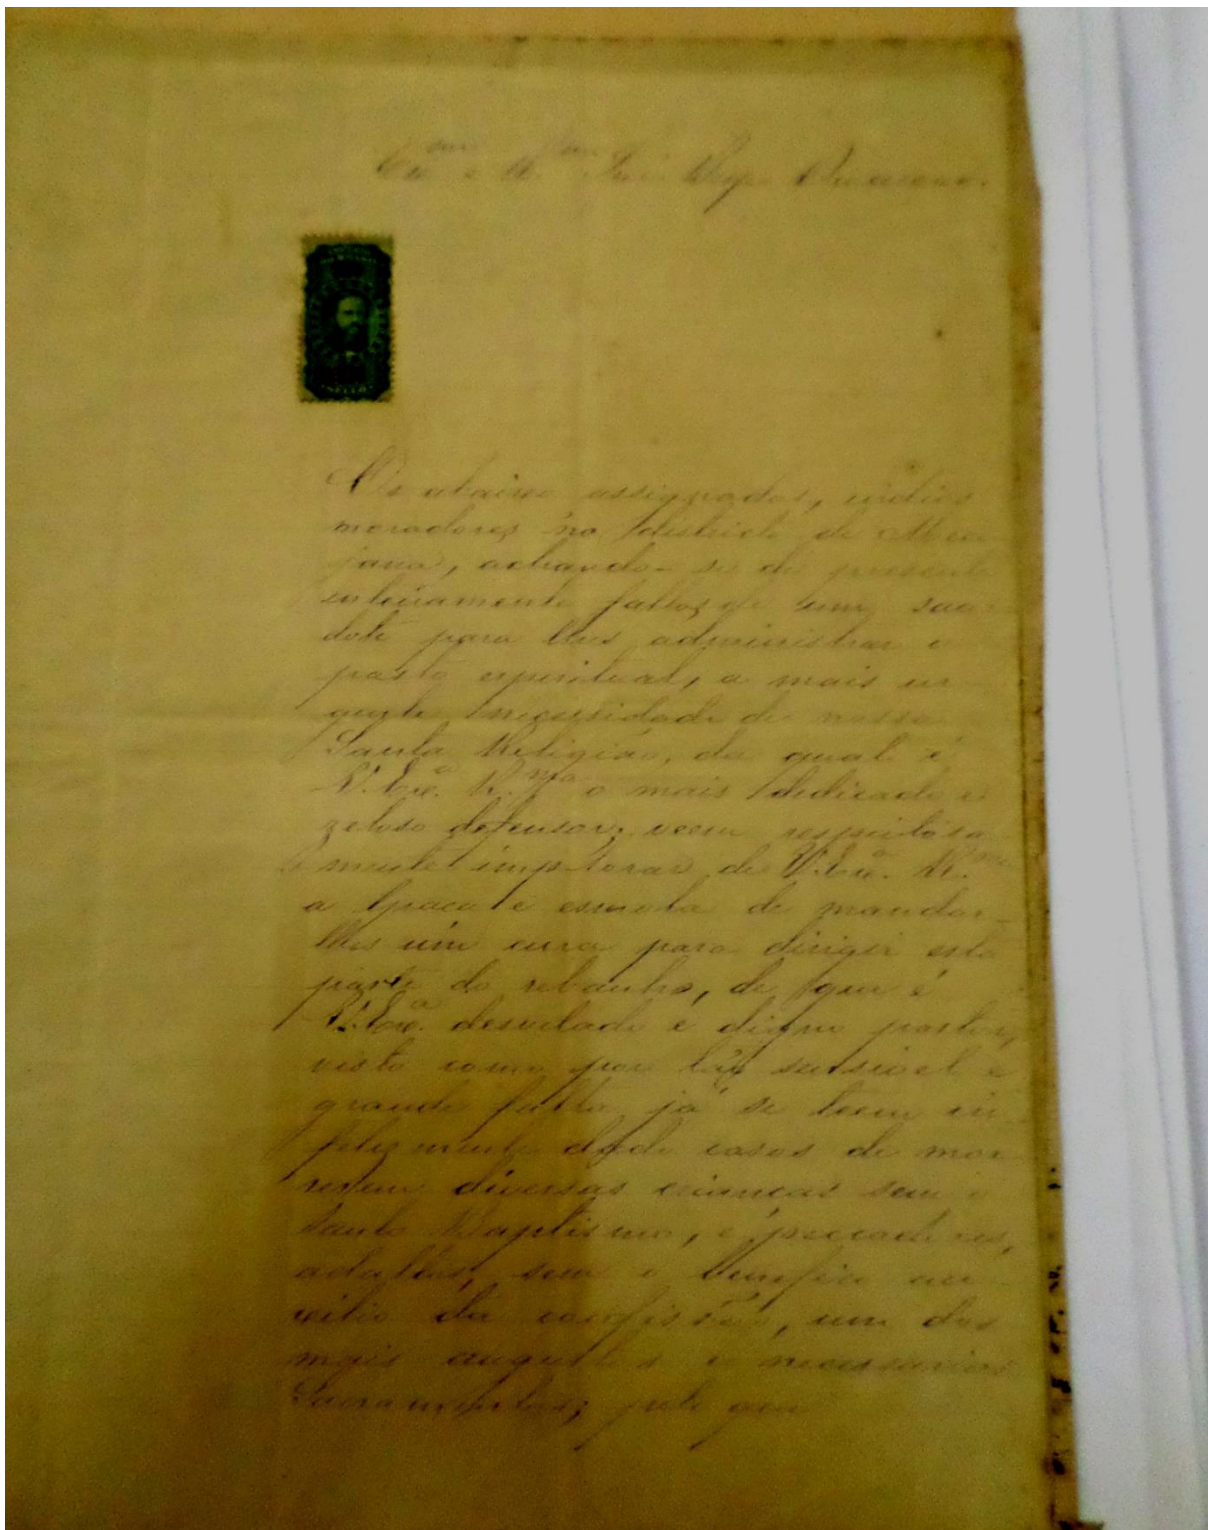 Ex.mo e R.mo Snr. Bispo Diocesano.
Os abaixo assignados, indios
moradores no districto de Mece-
jana, achando-se de presente
inteiramente faltos de um sacer-
dote para lhes administrar o
pasto espiritual, a mais ur-
gente necessidade de nossa
Santa Religião, da qual é
V. Exc.a R.ma o mais dedicado e
zeloso defensor; veem respeitosa-
mente implorar de V. Exc.a R.ma
a graça e esmola de mandar-
lhes um cura para dirigir esta
parte do rebanho, de que é
V. Exc.a desvelado e digno pastor,
visto como por tão sensivel e
grande falta já se teem in-
felizmente dado casos de mor-
rerem diversas crianças sem o
Santo Baptismo, e peccadores,
adultos, sem o benefico au-
xilio da confissão, um dos
mais augustos e necessarios
Sacramentos; pelo que